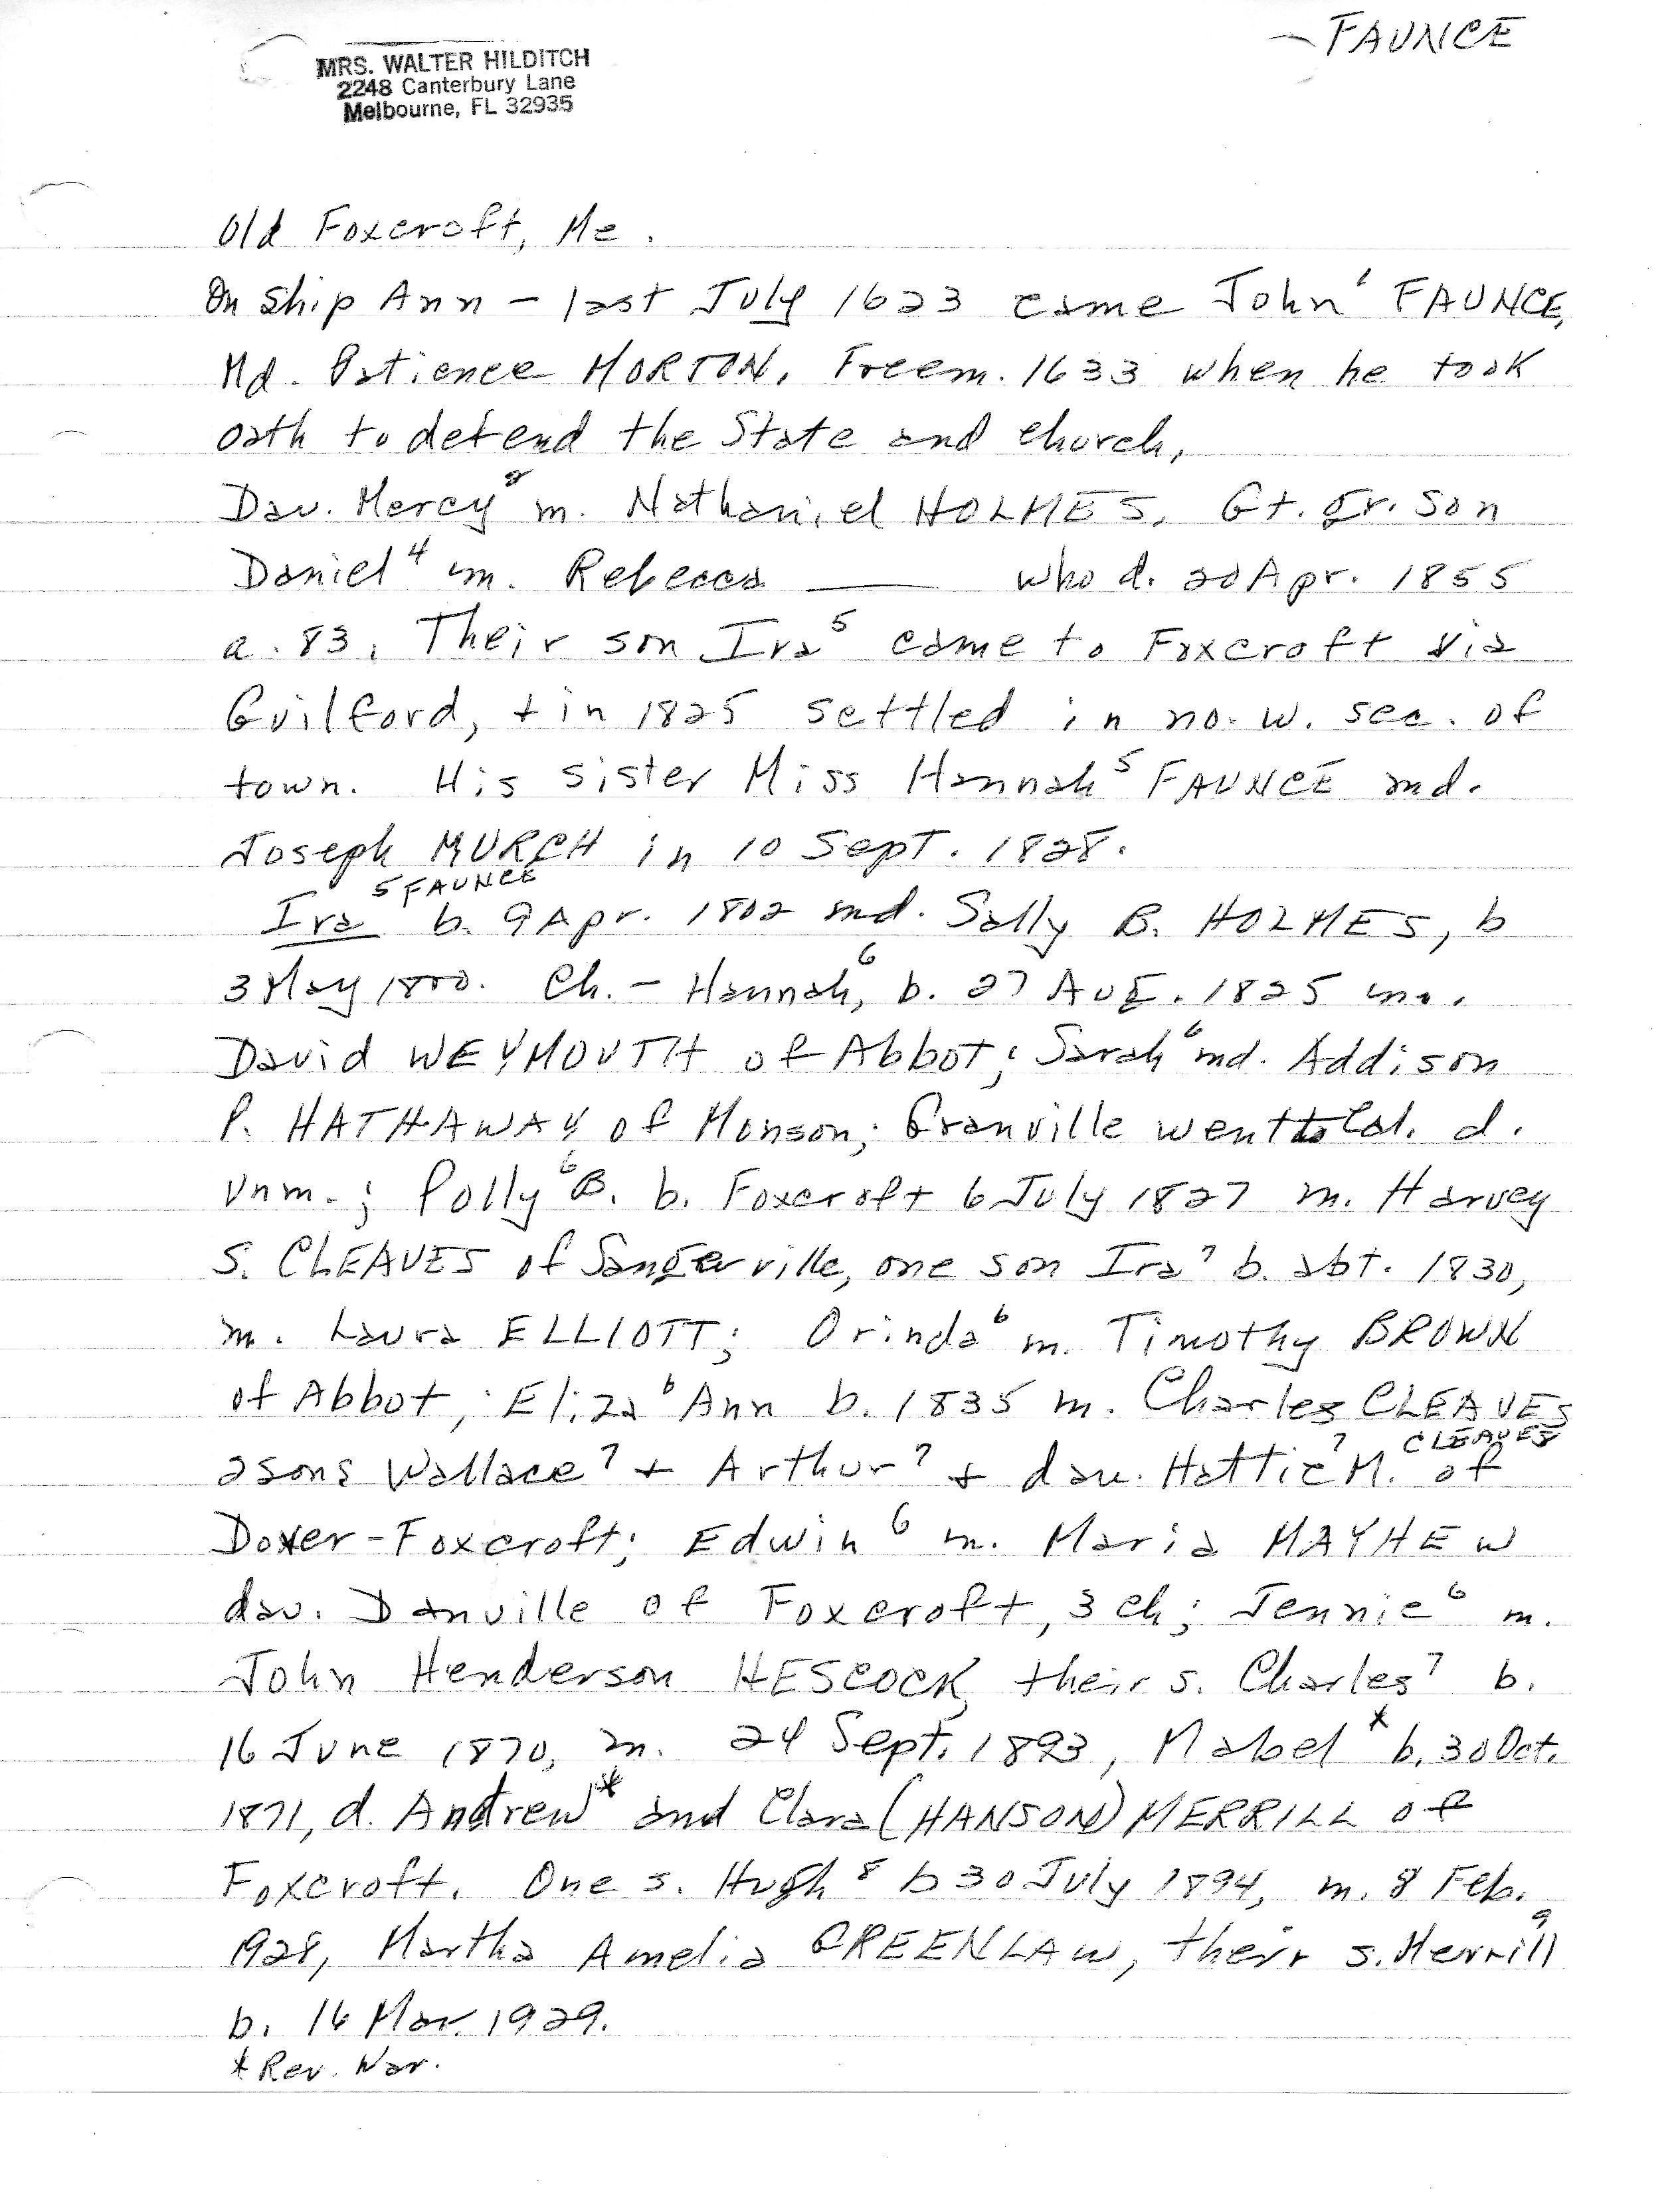 FAUNCE
MRS. WALTER HILDITCH
2248 Canterbury Lane
Melbourne, FL 32935
Old Foxcroft, Me.
On Ship Ann - last July 1623 came John¹ FAUNCE,
Md. Patience MORTON, Freem. 1633 when he took
oath to defend the State and church,
Dau. Mercy² m. Nathaniel HOLMES, Gt. gr. son
Daniel⁴ m. Rebecca ____ who d. 20 Apr. 1855
a. 83, Their son Ira⁵ came to Foxcroft via
Guilford, + in 1825 settled in no. w. sec. of
town. His sister Miss Hannah⁵ FAUNCE md.
Joseph MURCH in 10 Sept. 1828.
Ira⁵ FAUNCE b. 9 Apr. 1802 md. Sally B. HOLMES, b
3 May 1800. Ch. - Hannah⁶, b. 27 Aug. 1825 m.
David WEYMOUTH of Abbot; Sarah⁶ md. Addison
P. HATHAWAY of Monson; Granville went to Cal. d.
unm.; Polly⁶ B. b. Foxcroft 6 July 1827 m. Harvey
S. CLEAVES of Sangerville, one son Ira⁷ b. abt. 1830,
m. Laura ELLIOTT; Orinda⁶ m. Timothy BROWN
of Abbot; Eliza⁶ Ann b. 1835 m. Charles CLEAVES
2 sons Wallace⁷ + Arthur⁷ + dau. Hattie⁷ M. CLEAVES of
Dover-Foxcroft; Edwin⁶ m. Maria MAYHEW
dau. Danville of Foxcroft, 3 ch; Jennie⁶ m.
John Henderson HESCOCK, their s. Charles⁷ b.
16 June 1870, m. 24 Sept. 1893, Mabel* b. 30 Oct.
1871, d. Andrew* and Clara (HANSON) MERRILL of
Foxcroft. One s. Hugh⁸ b 30 July 1894, m. 8 Feb.
1928, Martha Amelia GREENLAW, their s. Merrill⁹
b. 16 Mar. 1929.
* Rev. War.